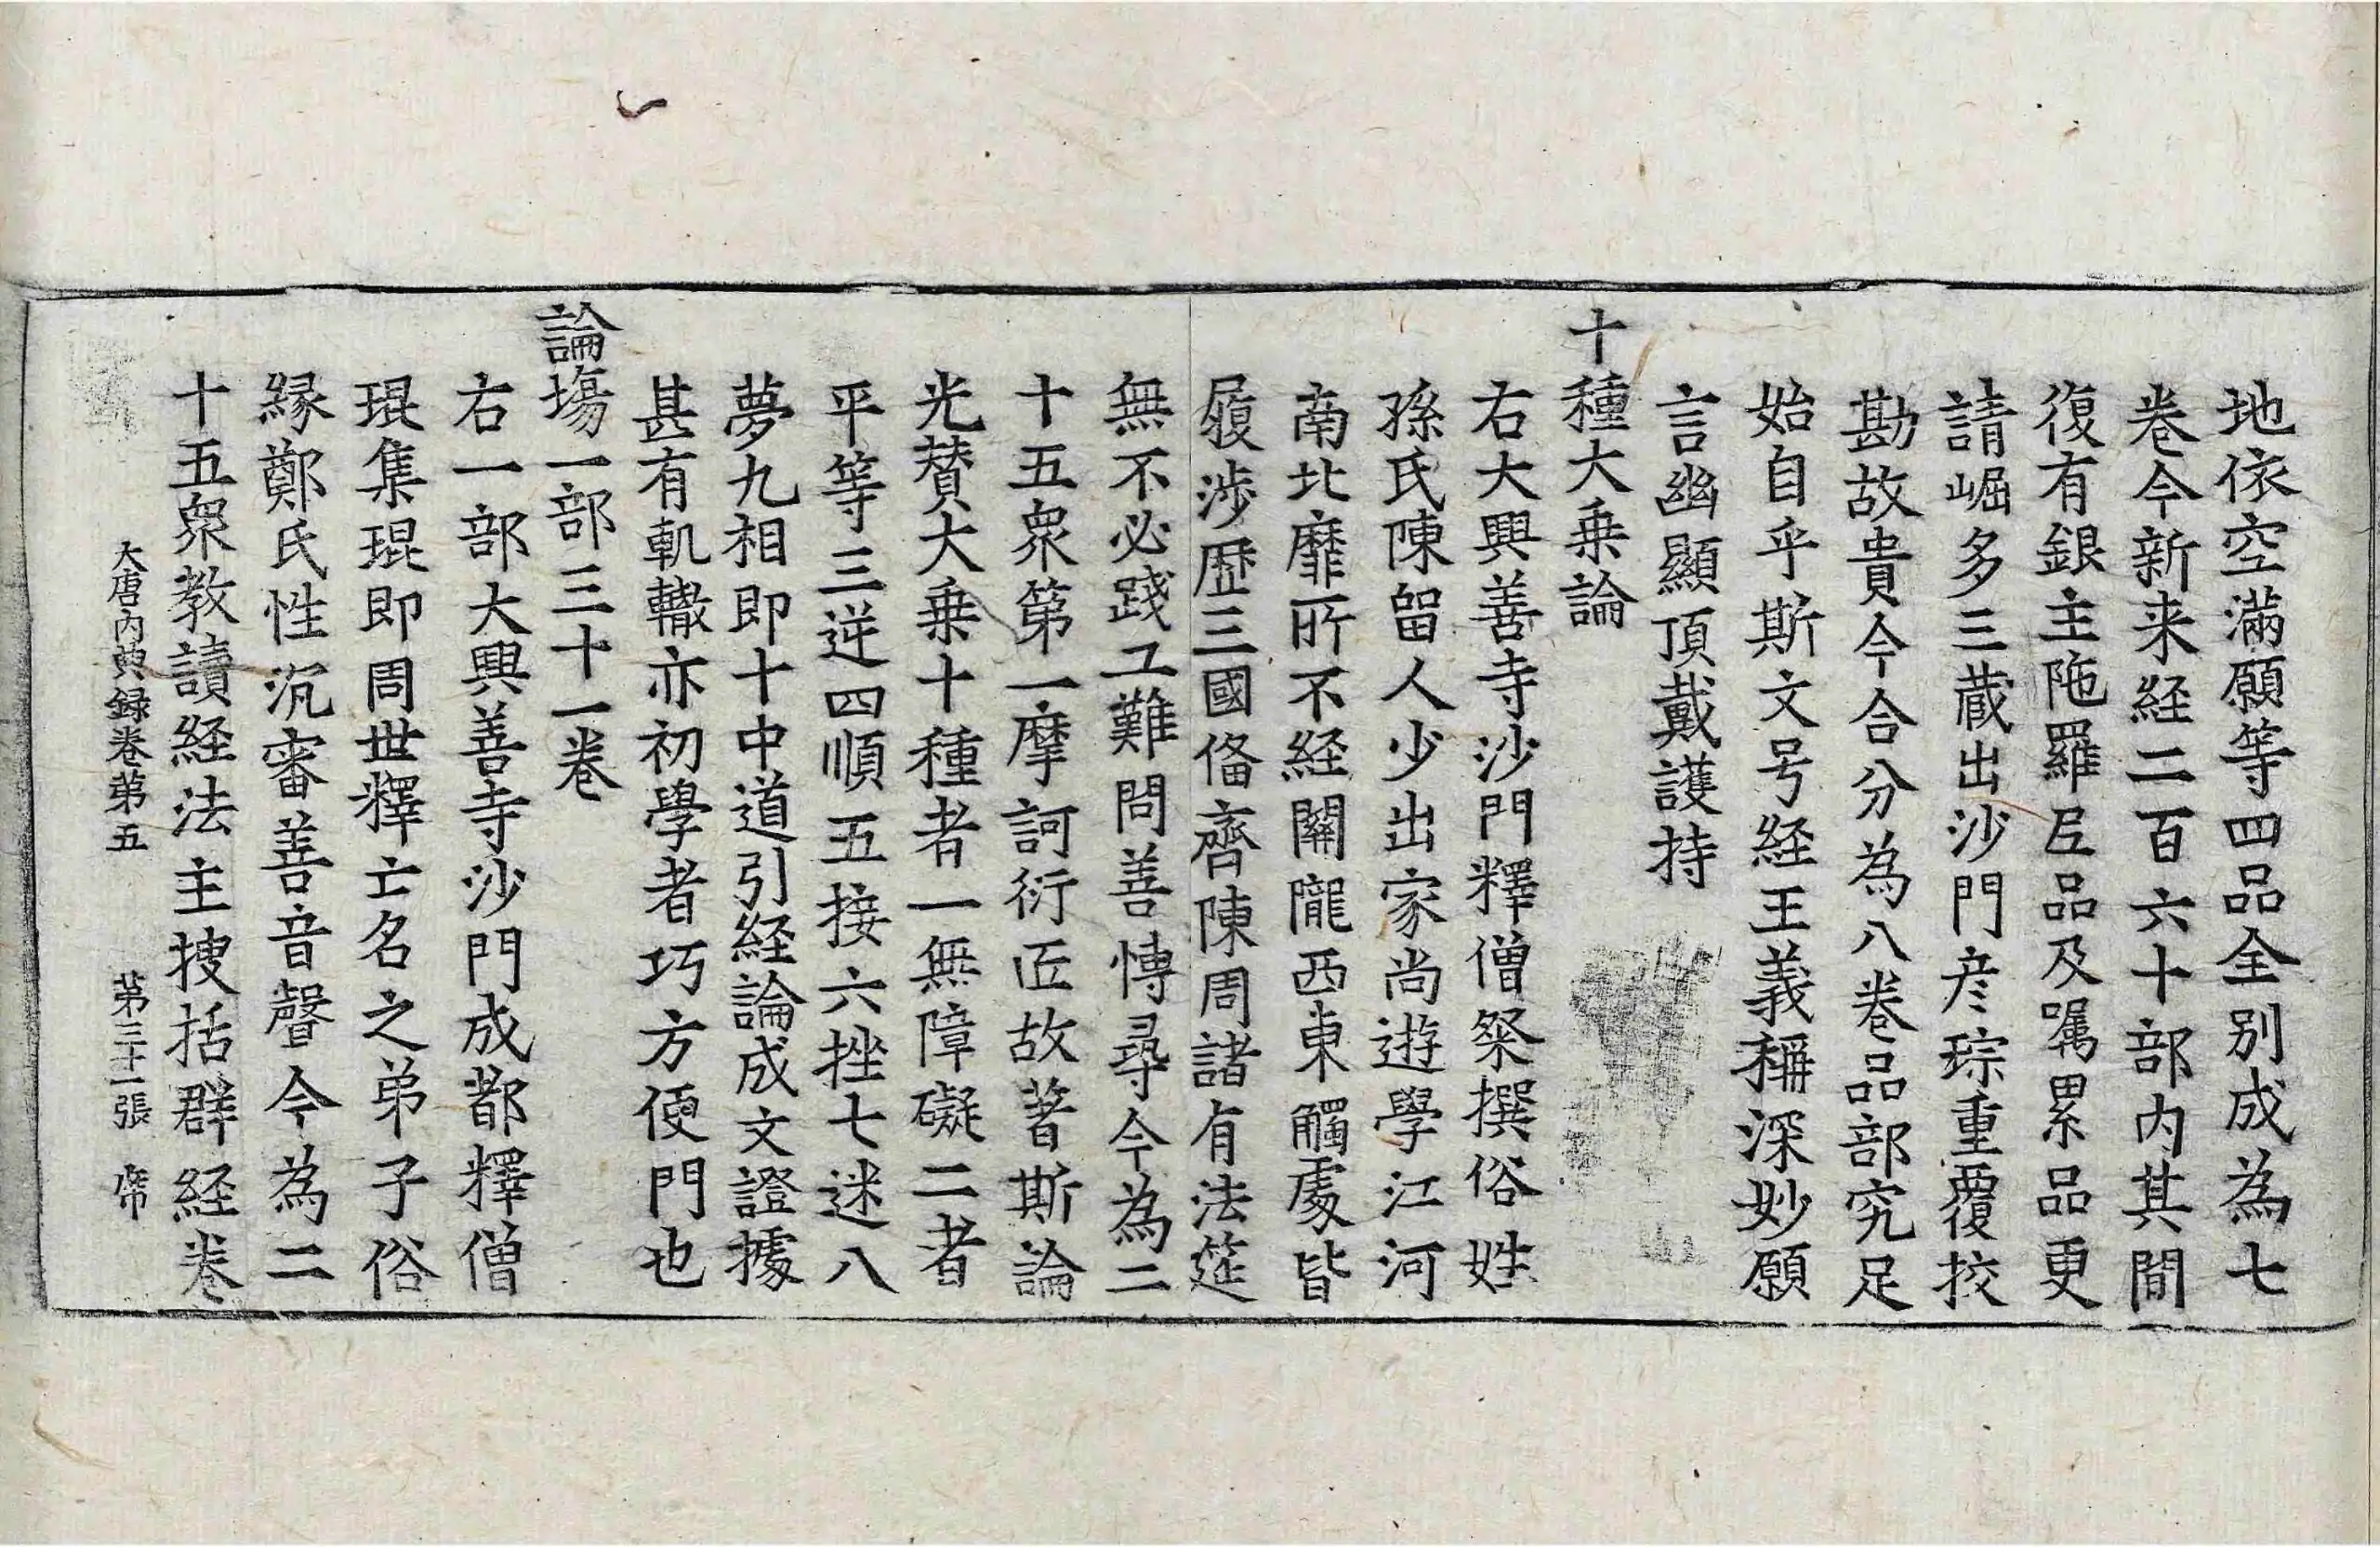 地依空滿願等四品全别成為七
卷今新来経二百六十部内其間
復有銀主陁羅尼品及嘱累品更
請崛多三藏出沙門彦琮重覆挍
勘故貴今合分為八卷品部究足
始自乎斯文号経王義稱深妙願
言幽顯頂戴護持
十種大乗論
右大興善寺沙門釋僧粲撰俗姓
孫氏陳留人少出家尚遊學江河
南北靡所不経關隴西東觸處皆
履渉歴三國俻齊陳周諸有法莚
無不必踐工難問善慱尋今為二
十五衆第一摩訶衍匠故著斯論
光賛大乗十種者一無障礙二者
平等三逆四順五接六挫七迷八
夢九相即十中道引経論成文證據
甚有軌轍亦初學者巧方便門也
論塲一部三十一卷
右一部大興善寺沙門成都釋僧
琨集琨即周世釋亡名之弟子俗
縁鄭氏性沉審善音聲今為二
十五衆教讀経法主捜括群経卷
大唐内典録卷苐五 苐三十一張 席